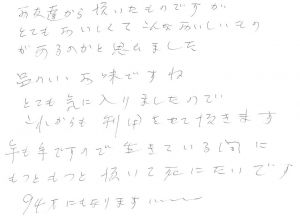 お友達から頂いたものですが
とてもおいしくてこんなおいしいもの
があるのかと思いました
品のいいお味ですね
とても気に入りましたので
これからも利用させて頂きます
年も年ですので生きている間に
もっともっと頂いて死にたいです
94才にもなります〜〜